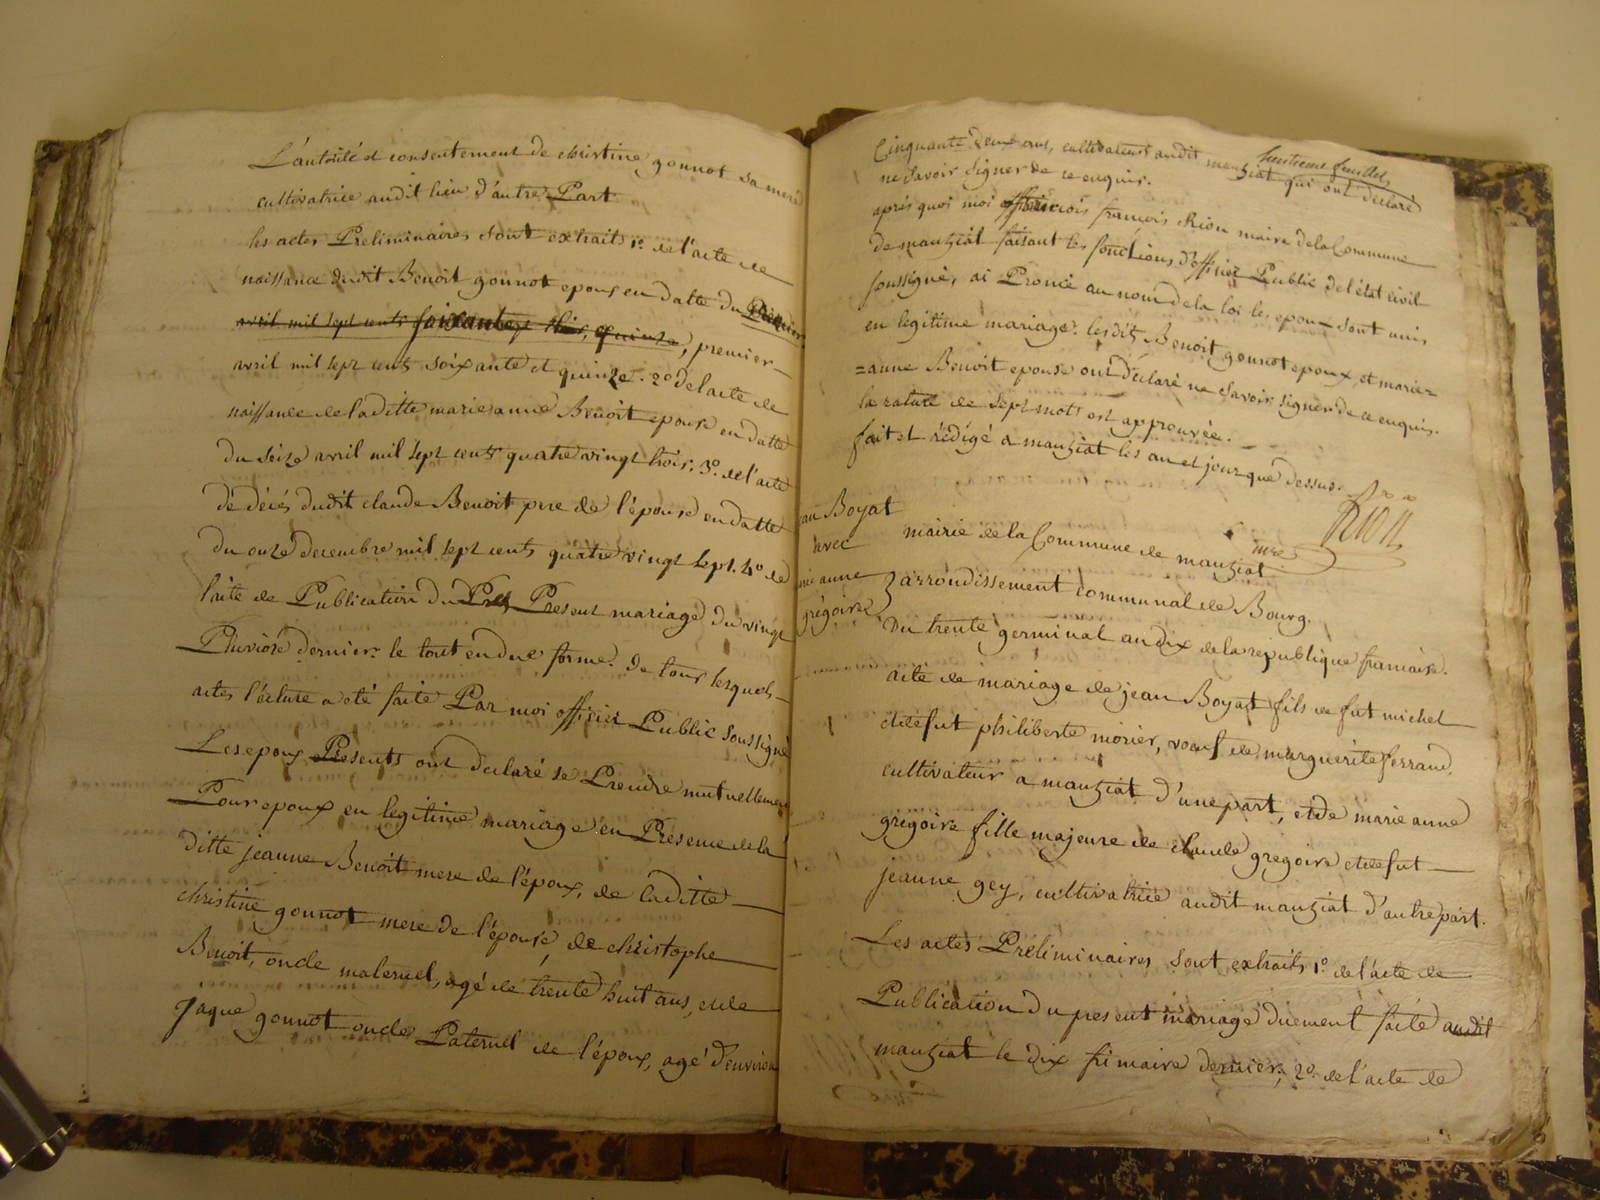 L'autorité et consentement de christine gonnot sa mere
cultivatrice audit lieu d'autre Part
les actes Preliminaires sont extraits 1.º de l'acte de
naissance dudit Benoit gonnot epoux en datte du
avril mil sept cents soixante quinze, premier
avril mil sept cents soixante et quinze. 2.º de lacte de
naissance de laditte marie anne Benoit epouse en datte
du seize avril mil sept cents quatre vingt trois. 3.º de l'acte
de décés dudit claude Benoit pere de l'épouse en datte
du onze decembre mil sept cents quatre vingt sept. 4.º de
l'acte de Publication du Present mariage du vingt
Pluviose dernier. le tout en due forme. de tous lesquels
actes lecture a été faite Par moi officier Public soussigné
Les epoux Presents ont declaré se Prendre mutuellement
Pour epoux en legitime mariage en Presence de la
ditte jeanne Benoit mere de l'époux, de laditte
christine gonnot mere de l'épouse, de christophe
Benoit, oncle maternel, agé de trente huit ans, et de
jaque gonnot oncle Paternel de l'époux, agé d'environ
feuillet
Cinquante deux ans, cultivateurs audit manziat qui ont declaré
ne savoir signer de ce enquis.
aprés quoi moi françois Rion maire de la Commune
de manziat faisant les fonctions d'officier Public de l'état civil
soussigné, ai Prononcé au nom de la loi les epoux sont unis
en legitime mariage. lesdits Benoit gonnot epoux, et marie=
=anne Benoit epouse ont déclaré ne savoir signer de ce enquis.
la rature de sept mots est approuvée.
fait et rédigé a manziat les an et jour que dessus.
Rion
mre
Boyat
avec
anne
grégoire
mairie de la Commune de manziat
arrondissement communal de Bourg.
Du trente germinal an dix de la republique francaise.
acte de mariage de jean Boyat fils de fut michel
et de fut philiberte morier, voeuf de marguerite ferrand,
cultivateur a manziat d'une part, et de marie anne
gregoire fille majeure de claude gregoire et de fut
jeanne gey, cultivatrice audit manziat d'autre part.
Les actes Préliminaires sont extraits 1.º de l'acte de
Publication du present mariage duement faite audit
manziat le dix frimaire dernier; 2.º de l'acte de